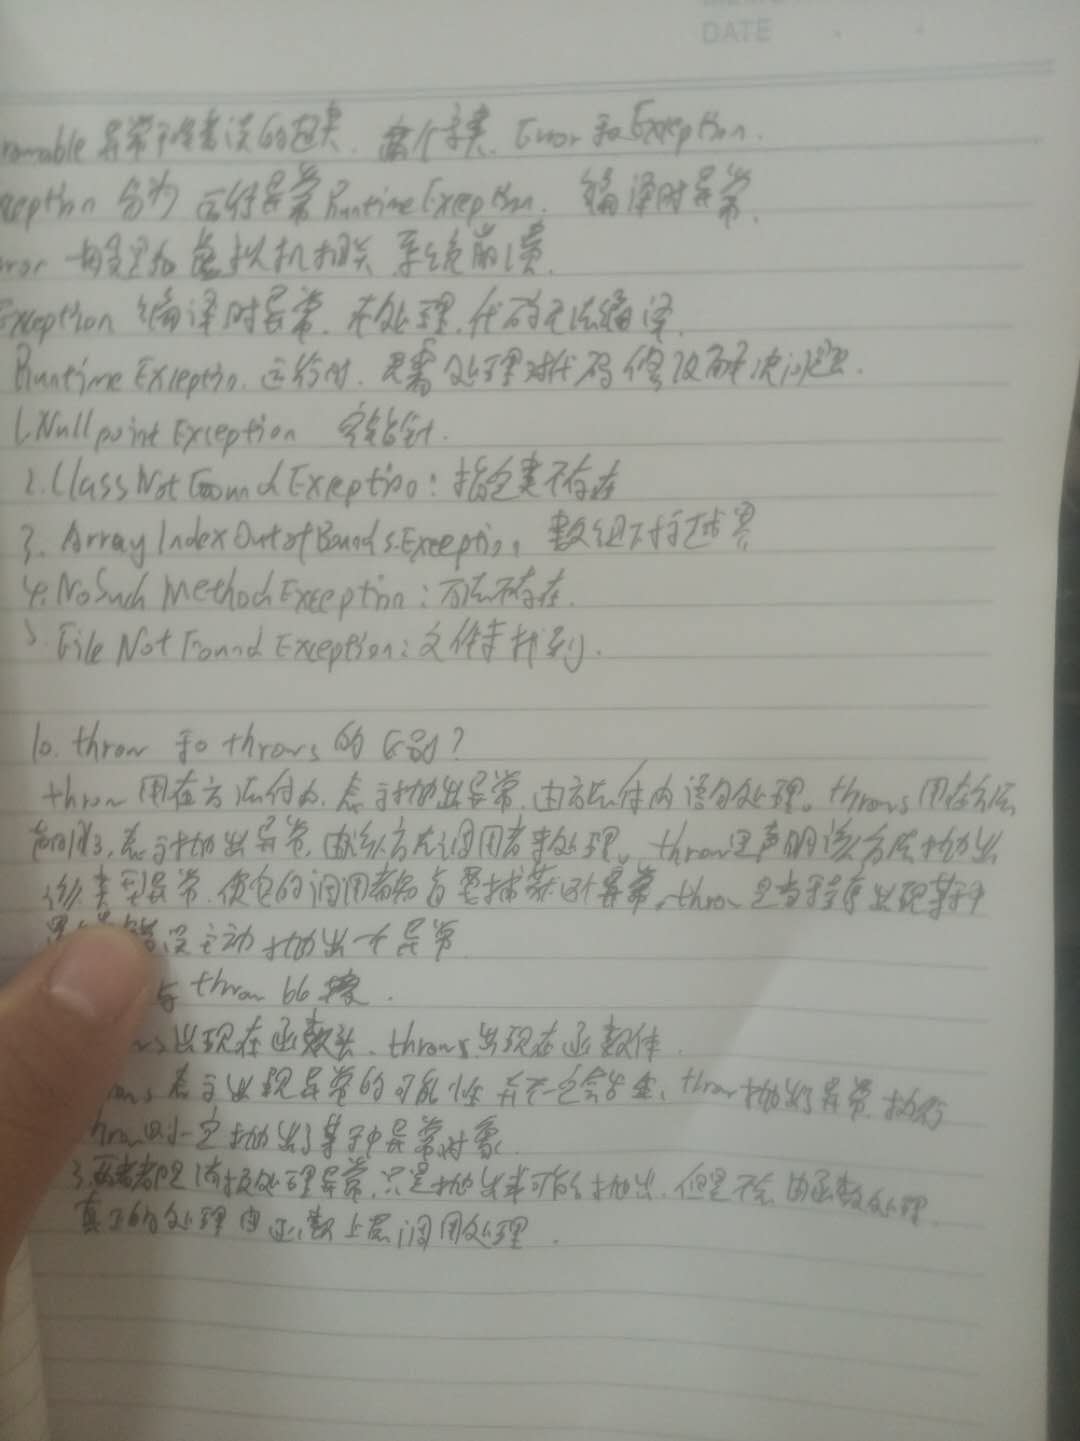 DATE
rowable 异常和错误的超类. 两个子类. Error 和 Exception.
ception 分为 运行异常 RuntimeException. 编译时异常.
rror 一般是和虚拟机相关 系统崩溃.
Exception 编译时异常. 不处理. 代码无法编译.
RuntimeException. 运行时. 只需处理对代码修改解决问题.
1.NullpointException 空指针.
2.ClassNotFoundException: 指定类不存在
3. ArrayIndexOutofBoundsException, 数组下标越界
4.NoSuchMethodException: 方法不存在.
5. FileNotFoundException: 文件未找到.
10. throw 和 throws 的区别?
throw 用在方法体内. 表示抛出异常. 由方法体内语句处理。throws 用在方法
声明后, 表示抛出异常, 由该方法调用者来处理。throw是声明该方法抛出
该类型异常. 使它的调用者知道要捕获这个异常。throw 是当程序出现某种
错误主动抛出一个异常
与 throw 比较.
s出现在函数头. throws出现在函数体.
ows 表示出现异常的可能性 并不一定会发生. throw抛出了异常. 执行
hrow则一定抛出了某种异常对象.
3.两者都是消极处理异常. 只是抛出或可能抛出. 但是不会由函数处理.
真正的处理由函数上层调用处理.